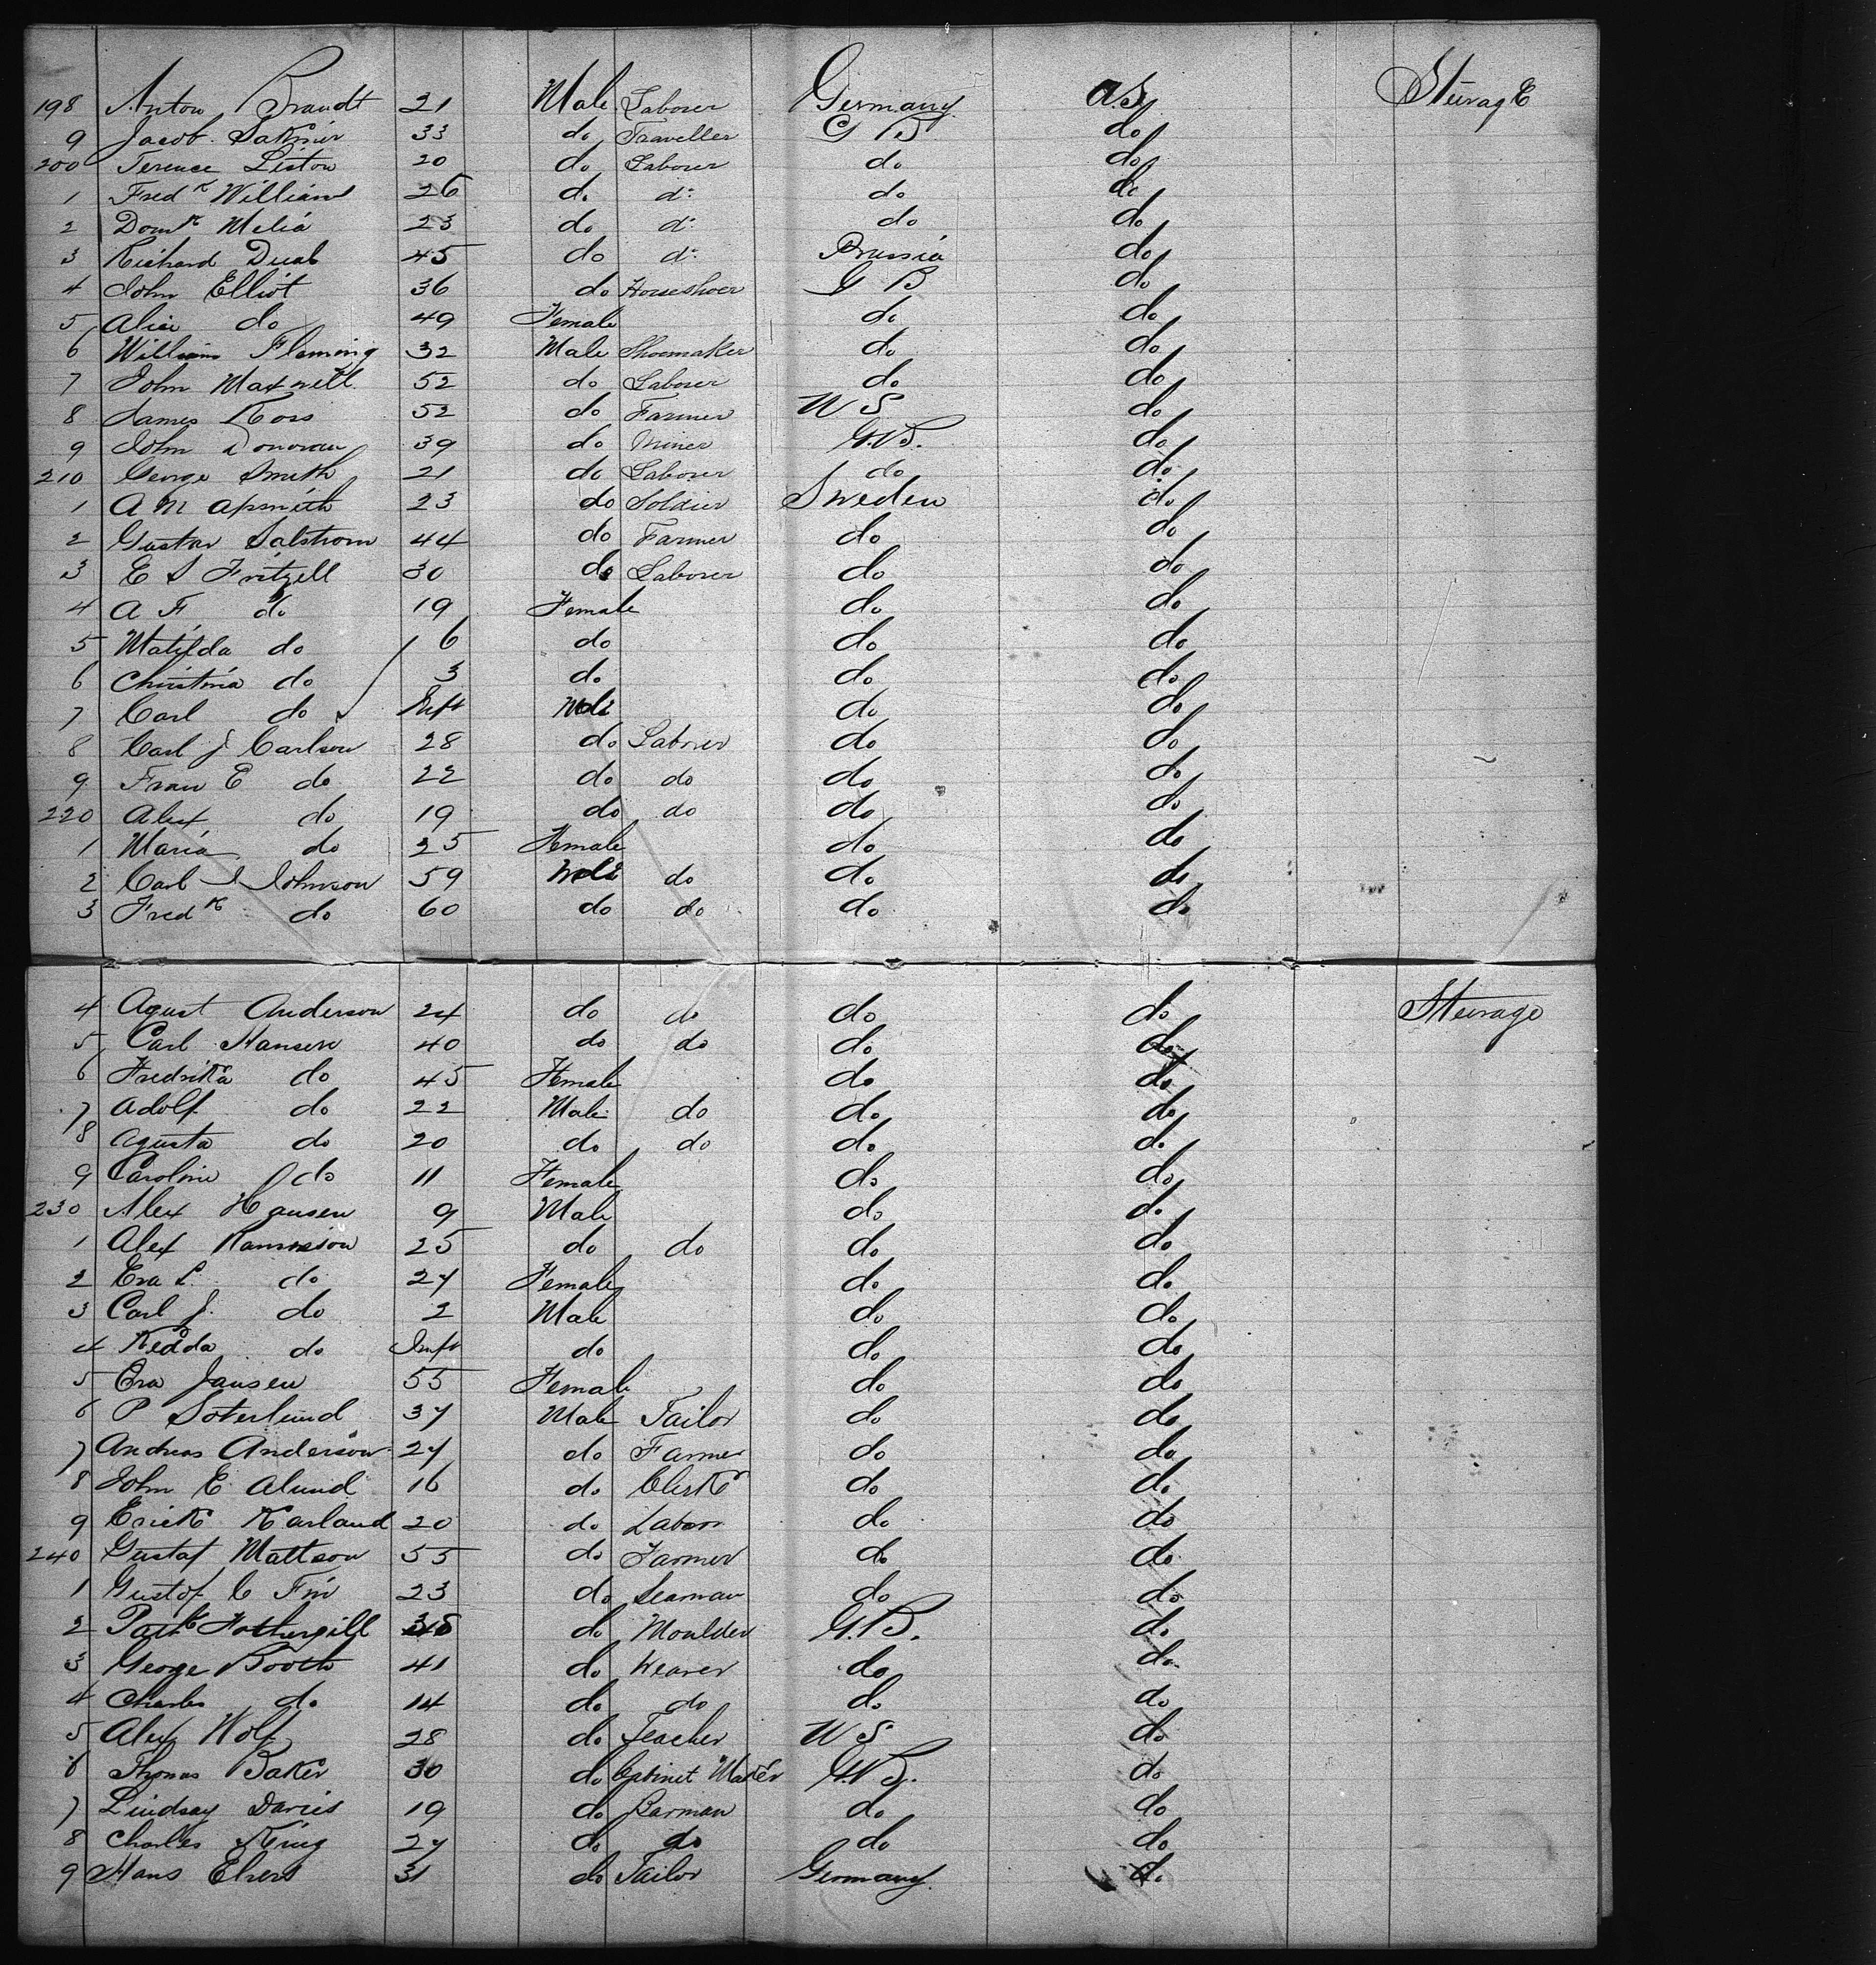 198 Anton Brandt 21 Male Laborer Germany U.S. Steerage
9 Jacob 33 do Traveller G B do
200 Terence Liston 20 do Laborer do do
1 Fredk William 26 do do do do
2 Domk Melia 23 do do do do
3 Richard 45 do do Prussia do
4 John Elliot 36 do Horseshoer G B do
5 Alice do 49 Female do do
6 William Fleming 32 Male Shoemaker do do
7 John Maxwell 52 do Laborer do do
8 James Ross 52 do Farmer U S do
9 John Donovan 39 do Miner G.B. do
210 George Smith 21 do Laborer do do
1 A M 23 do Soldier Sweden do
2 Gustav Salstrom 44 do Farmer do do
3 E S Fritzell 30 do Laborer do do
4 A F do 19 Female do do
5 Matilda do 6 do do do
6 Christina do 3 do do do
7 Carl do Inft Male do do
8 Carl J Carlson 28 do Laborer do do
9 Frau E do 22 do do do do
220 Alex do 19 do do do do
1 Maria do 25 Female do do
2 Carl J Johnson 59 Male do do do
3 Fredk do 60 do do do do
4 Agust Anderson 24 do do do do Steerage
5 Carl Hansen 40 do do do do
6 Fredrika do 45 Female do do
7 Adolf do 22 Male do do do
8 Agusta do 20 do do do do
9 Caroline do 11 Female do do
230 Alex Hansen 9 Male do do
1 Alex 25 do do do do
2 Eva L do 27 Female do do
3 Carl J. do 2 Male do do
4 Hedda do Inft do do do
5 Eva Jansen 55 Female do do
6 P Soterlund 37 Male Tailor do do
7 Andreas Anderson 27 do Farmer do do
8 John E Alund 16 do Clerk do do
9 Erick Karland 20 do Labor do do
240 Gustaf Mattson 55 do Farmer do do
1 Gustof C 23 do Seaman do do
2 Patk Fothergill do Moulder G.B. do
3 George Booth 41 do Weaver do do
4 Charles do 14 do do do do
5 Alex Wolf 28 do Teacher U S do
6 Thomas Baker 30 do Cabinet Maker G.B. do
7 Lindsay Davies 19 do Barman do do
8 Charles King 27 do do do do
9 Hans Ehers 31 do Tailor Germany do